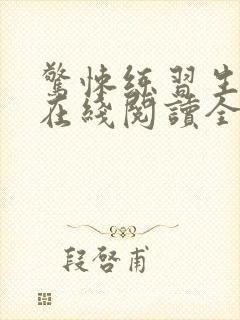 驚悚練習生
在綫閱讀全
段啓甫